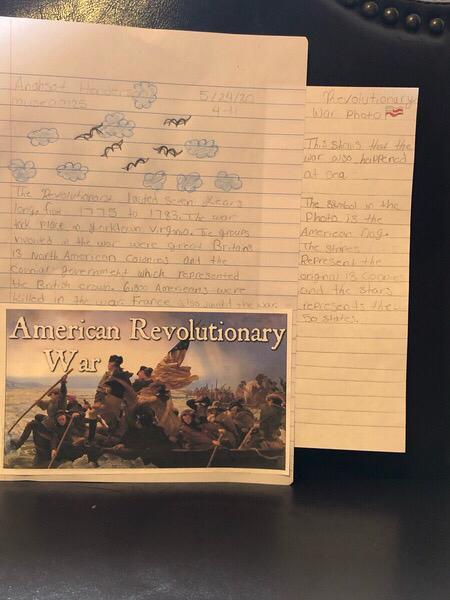 5/29/20
4-11
The Revolutionary lasted seven years
long, from 1775 to 1783. The war
took place in Yorktown Virginia. The groups
involved in the war were great Britain
13 North American colonies and the
colonial government which represented
the British crown. 6,800 Americans were
killed in the war. France also the war.
American Revolutionary
War
Revolutionary
War Photo
This shows that the
war also happened
at sea.
The symbol in the
Photo is the
American flag.
The stripes
Represent the
original 13 colonies
and the stars
represents the
50 states.